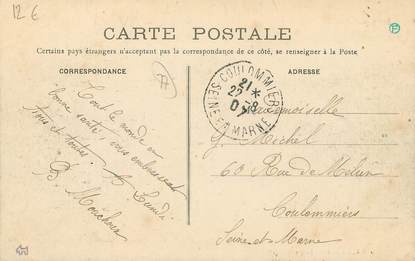 12 €
CARTE POSTALE
Certains pays étrangers n'acceptant pas la correspondance de ce côté, se renseigner à la Poste
CORRESPONDANCE
ADRESSE
COULOMMIERS
21 *
22
0 - 8
SEINE ET MARNE
Tout le monde en
bonne santé, vous embrassent
tous et toutes.
B.
Mademoiselle
G. Michel
60 Rue de Melun
Coulommiers
Seine-et-Marne